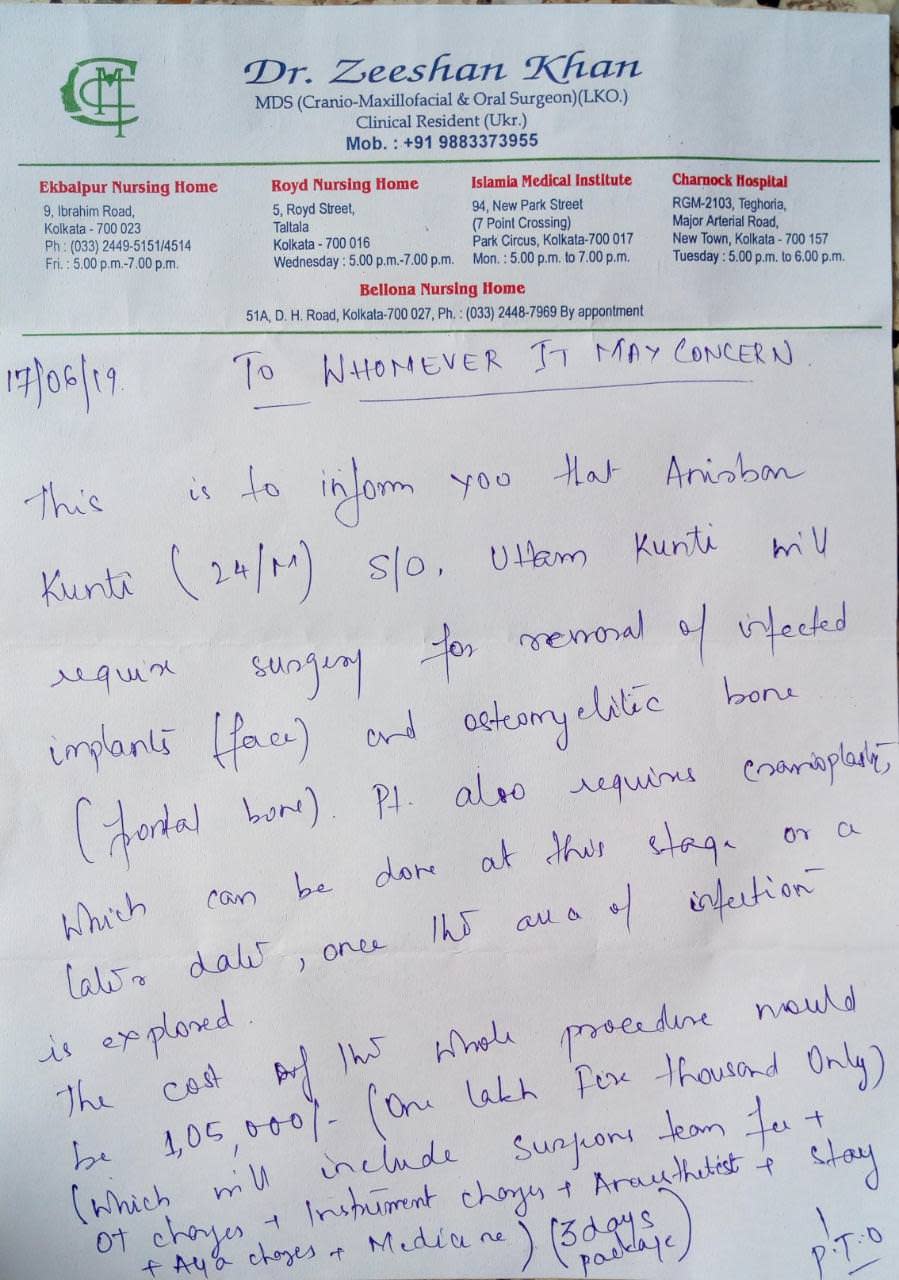 Dr. Zeeshan Khan
MDS (Cranio-Maxillofacial & Oral Surgeon)(LKO.)
Clinical Resident (Ukr.)
Mob. : +91 9883373955
Ekbalpur Nursing Home
9, Ibrahim Road,
Kolkata - 700 023
Ph : (033) 2449-5151/4514
Fri. : 5.00 p.m.-7.00 p.m.
Royd Nursing Home
5, Royd Street,
Taltala
Kolkata - 700 016
Wednesday : 5.00 p.m.-7.00 p.m.
Islamia Medical Institute
94, New Park Street
(7 Point Crossing)
Park Circus, Kolkata-700 017
Mon. : 5.00 p.m. to 7.00 p.m.
Charnock Hospital
RGM-2103, Teghoria,
Major Arterial Road,
New Town, Kolkata - 700 157
Tuesday : 5.00 p.m. to 6.00 p.m.
Bellona Nursing Home
51A, D. H. Road, Kolkata-700 027, Ph. : (033) 2448-7969 By appontment
17/06/19. TO WHOMEVER IT MAY CONCERN.
This is to inform you that Anirban
Kunti (24/M) S/O. Uttam Kunti will
require surgery for removal of infected
implants (face) and osteomyelitic bone
(frontal bone). Pt. also requires cranioplasty,
which can be done at this stage or a
later date, once the area of infection
is explored.
The cost of the whole procedure would
be 1,05,000/- (One lakh Five thousand Only)
(which will include surgeons team fee +
OT charges + Instrument charges + Anaesthetist + stay
+ Aya charges + Medicine) (3 days
package)
P.T.O